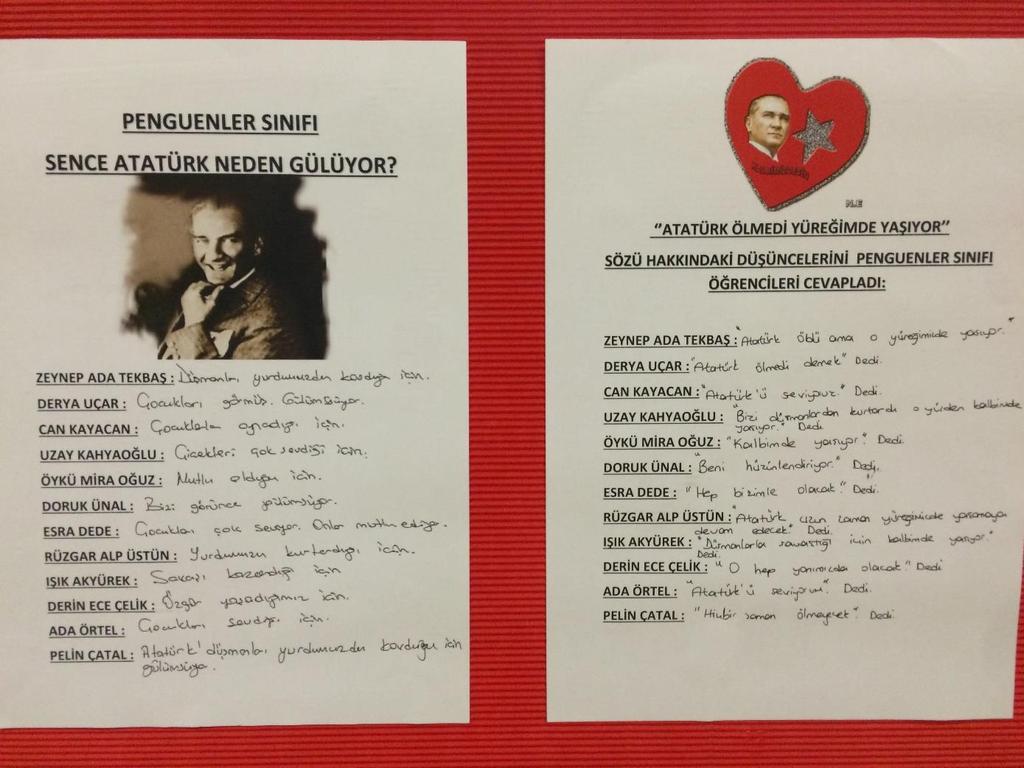 PENGUENLER SINIFI
SENCE ATATÜRK NEDEN GÜLÜYOR?
ZEYNEP ADA TEKBAŞ : Düşmanları yurdumuzdan kovduğu için.
DERYA UÇAR : Çocukları görmüş. Gülümsüyor.
CAN KAYACAN : Çocuklarla oynadığı için.
UZAY KAHYAOĞLU : Çiçekleri çok sevdiği için.
ÖYKÜ MİRA OĞUZ : Mutlu olduğu için.
DORUK ÜNAL : Bizi görünce gülümsüyor.
ESRA DEDE : Çocukları çok seviyor. Onlar mutlu ediyor.
RÜZGAR ALP ÜSTÜN : Yurdumuzu kurtardığı için.
IŞIK AKYÜREK : Savaşı kazandığı için
DERİN ECE ÇELİK : Özgür yaşadığımız için.
ADA ÖRTEL : Çocukları sevdiği için.
PELİN ÇATAL : Atatürk' düşmanları yurdumuzdan kovduğu için
gülümsüyor.
N.E
"ATATÜRK ÖLMEDİ YÜREĞİMDE YAŞIYOR"
SÖZÜ HAKKINDAKİ DÜŞÜNCELERİNİ PENGUENLER SINIFI
ÖĞRENCİLERİ CEVAPLADI:
ZEYNEP ADA TEKBAŞ : "Atatürk öldü ama o yüreğimizde yaşıyor."
DERYA UÇAR : "Atatürk ölmedi demek" Dedi.
CAN KAYACAN : "Atatürk'ü seviyoruz." Dedi.
UZAY KAHYAOĞLU : "Bizi düşmanlardan kurtardı o yüzden kalbimde
yaşıyor." Dedi
ÖYKÜ MİRA OĞUZ : "Kalbimde yaşıyor." Dedi.
DORUK ÜNAL : "Beni hüzünlendiriyor." Dedi.
ESRA DEDE : "Hep bizimle olacak." Dedi.
RÜZGAR ALP ÜSTÜN : "Atatürk uzun zaman yüreğimizde yaşamaya
devam edecek" Dedi.
IŞIK AKYÜREK : "Düşmanlarla savaştığı için kalbimde yaşıyor."
Dedi.
DERİN ECE ÇELİK : "O hep yanımızda olacak." Dedi
ADA ÖRTEL : "Atatürk'ü seviyorum". Dedi.
PELİN ÇATAL : "Hiçbir zaman ölmeyecek". Dedi.